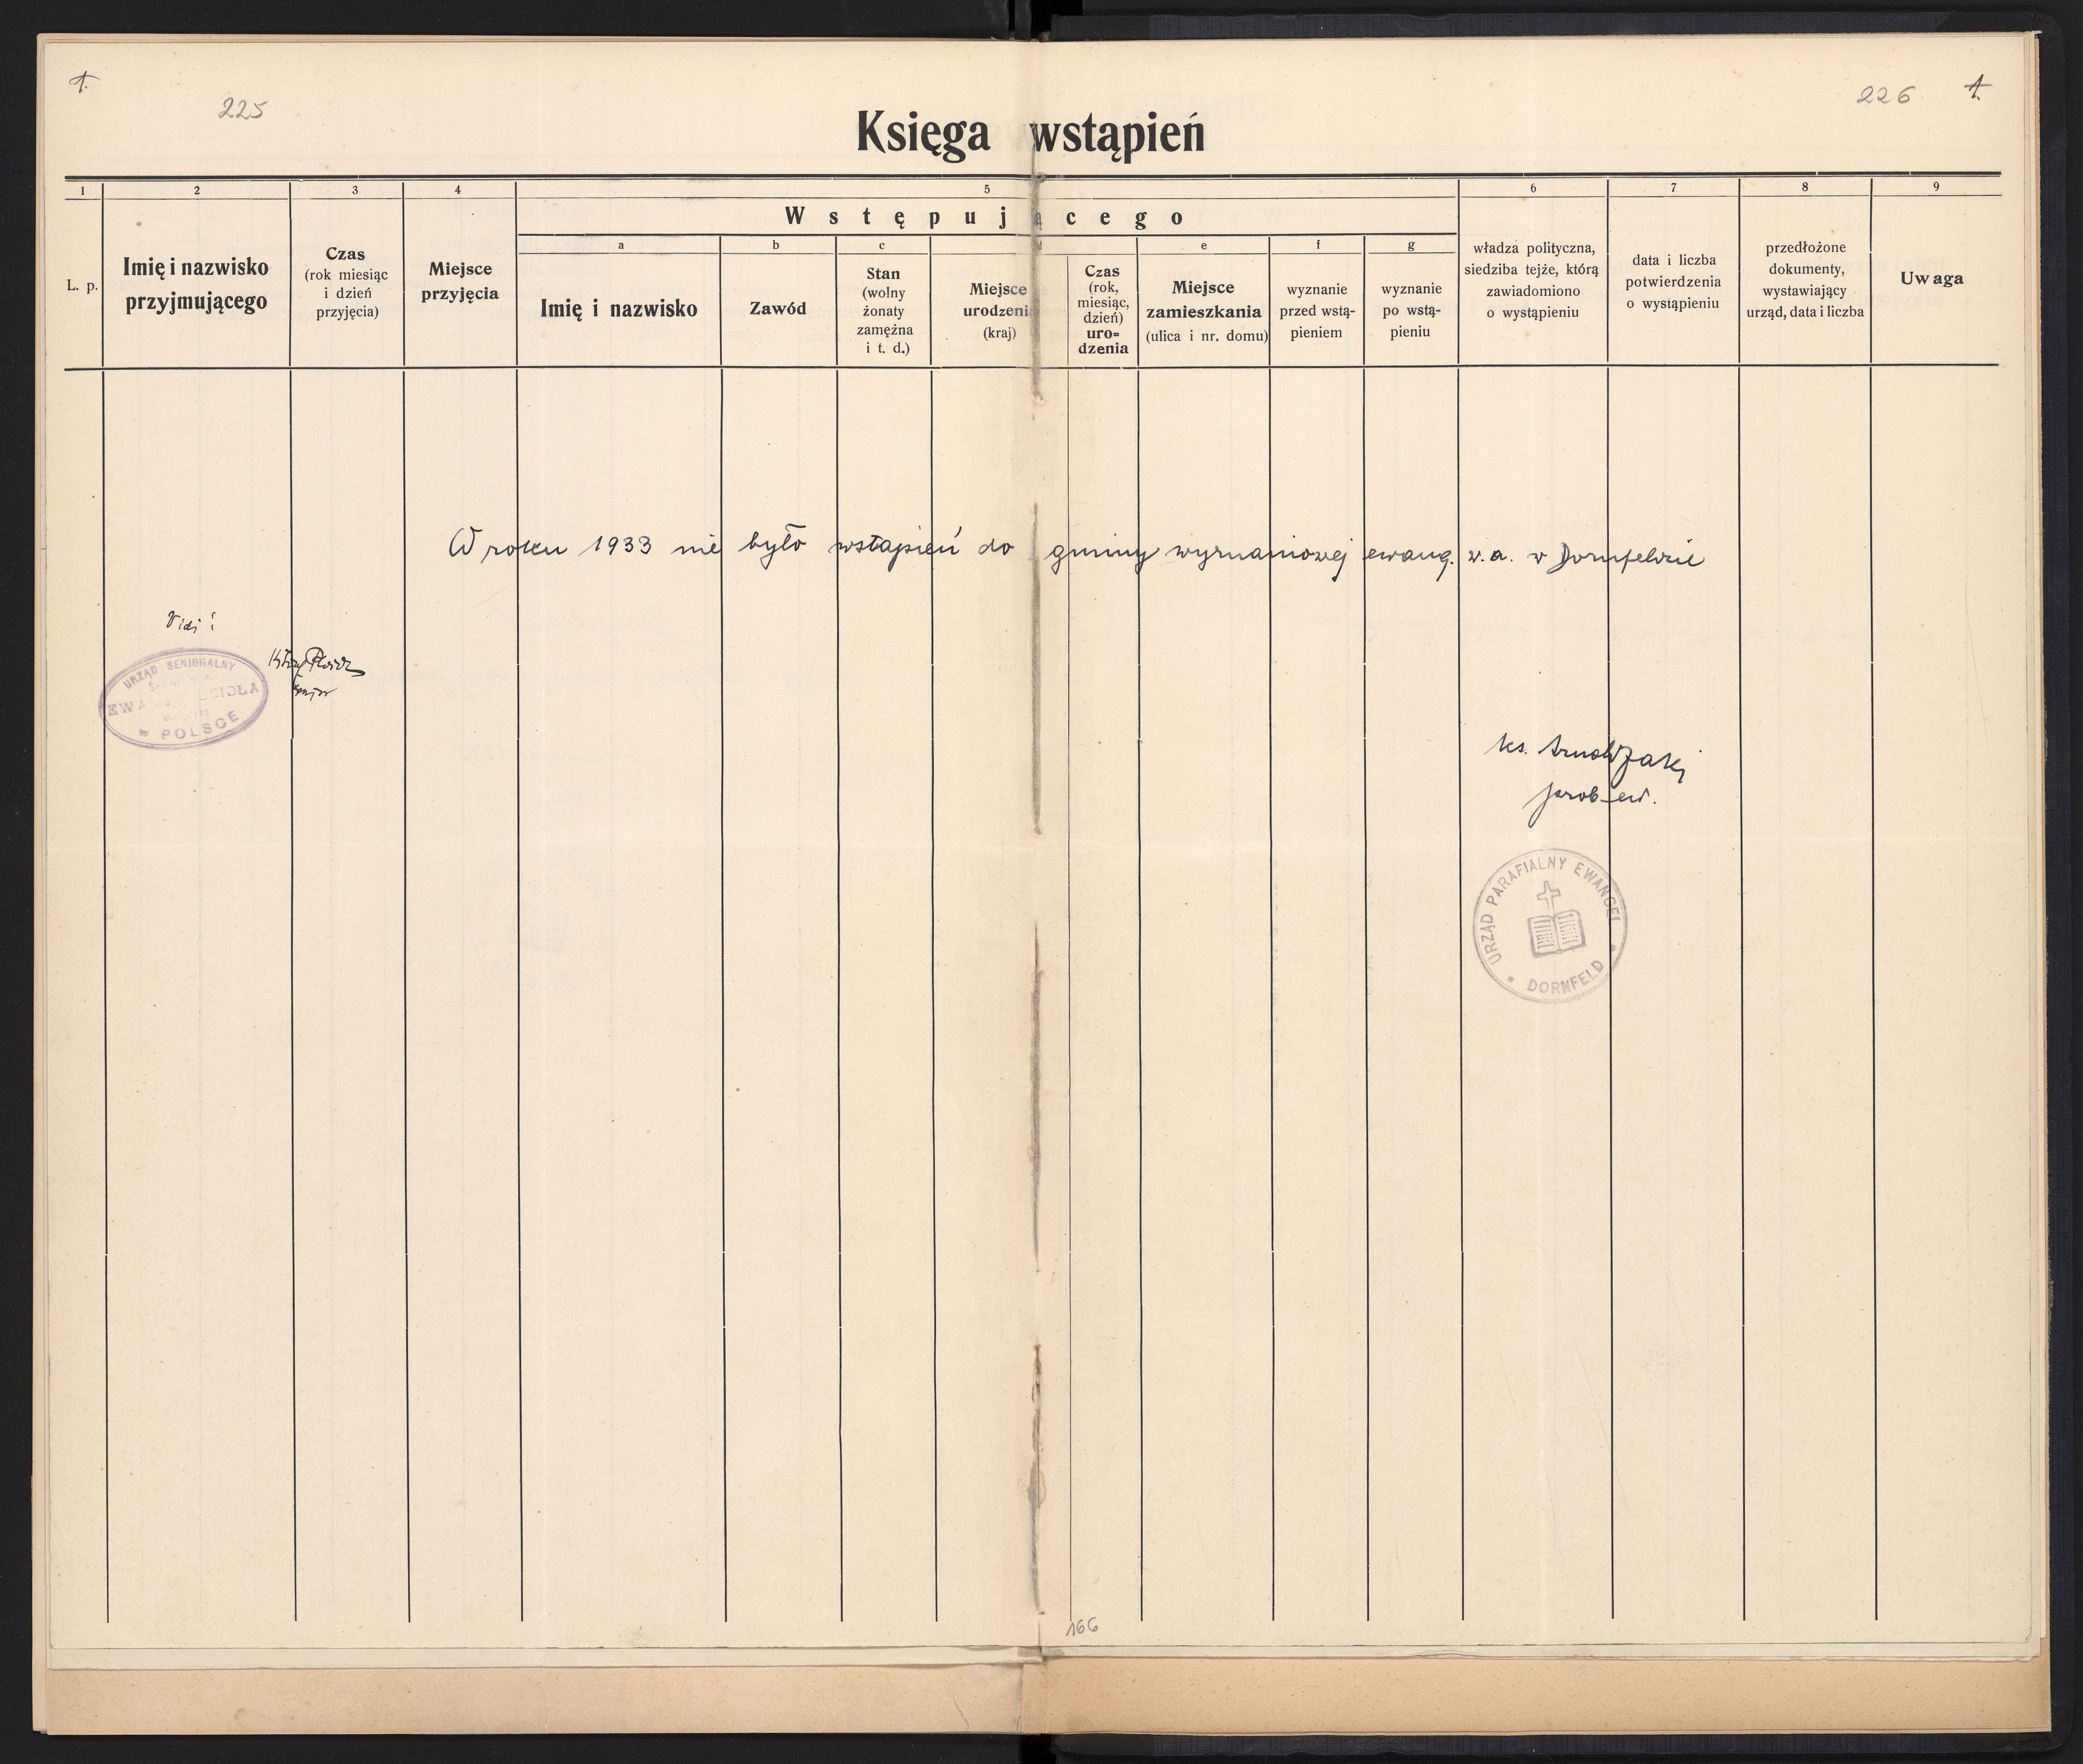 1.
225
226
1.
Księga wstąpień
1
2
3
4
5
6
7
8
9
L. p.
Imię i nazwisko
przyjmującego
Czas
(rok miesiąc
i dzień
przyjęcia)
Miejsce
przyjęcia
Wstępującego
a
Imię i nazwisko
b
Zawód
c
Stan
(wolny
żonaty
zamężna
i t. d.)
d
Miejsce
urodzenia
(kraj)
Czas
(rok,
miesiąc,
dzień)
uro=
dzenia
e
Miejsce
zamieszkania
(ulica i nr. domu)
f
wyznanie
przed wstą-
pieniem
g
wyznanie
po wstą-
pieniu
władza polityczna,
siedziba tejże, którą
zawiadomiono
o wystąpieniu
data i liczba
potwierdzenia
o wystąpieniu
przedłożone
dokumenty,
wystawiający
urząd, data i liczba
Uwaga
W roku 1933 nie było wstąpień do gminy wyznaniowej ewang. w.a. w Dornfeldzie
Vidi!
senjor
URZĄD SENJORALNY
w POLSCE
ks. Arnold Jaki
prob. ew.
URZĄD PARAFIALNY EWANGEL
* DORNFELD *
166